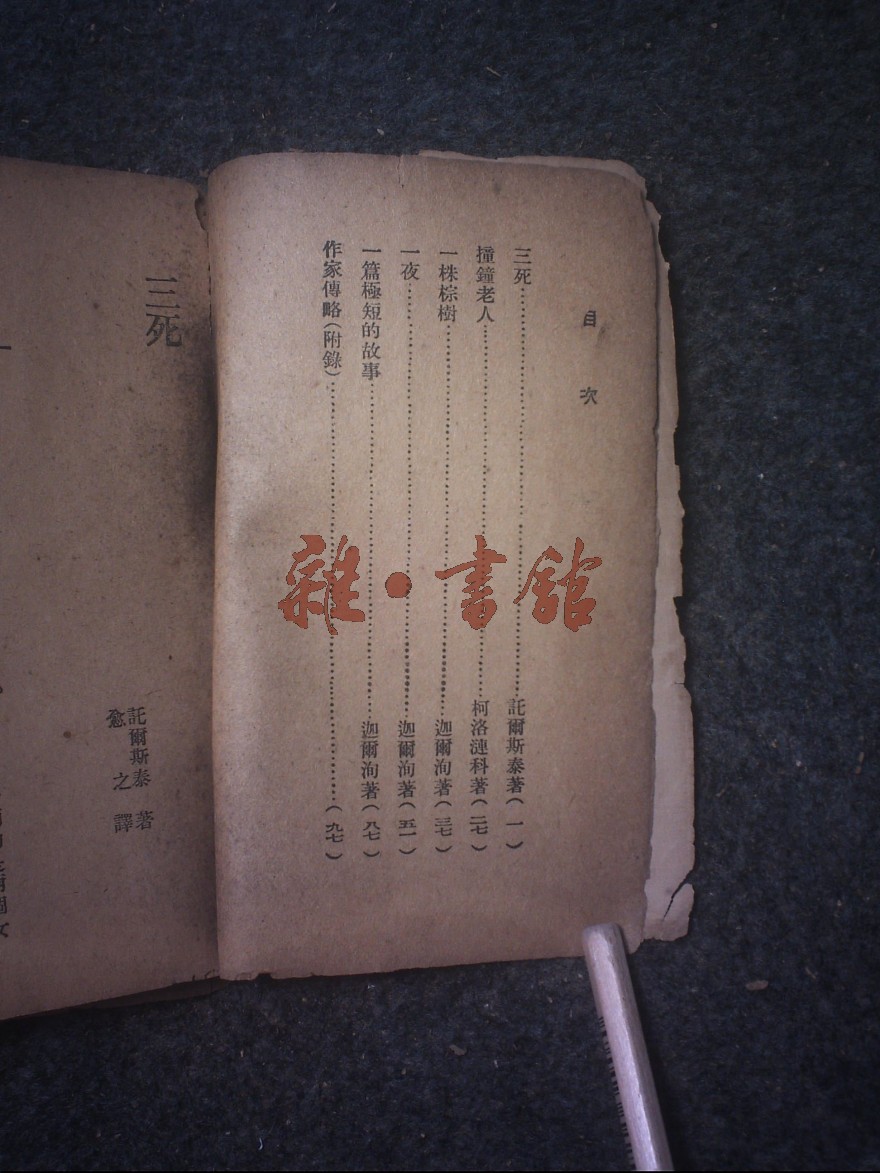 目次
三死……託爾斯泰著(一)
撞鐘老人……柯洛漣科著(二七)
一株棕樹……迦爾洵著(三七)
一夜……迦爾洵著(五一)
一篇極短的故事……迦爾洵著(八七)
作家傳略(附錄)……(九七)
雜·書館
三死
託爾斯泰著
愈之譯
一